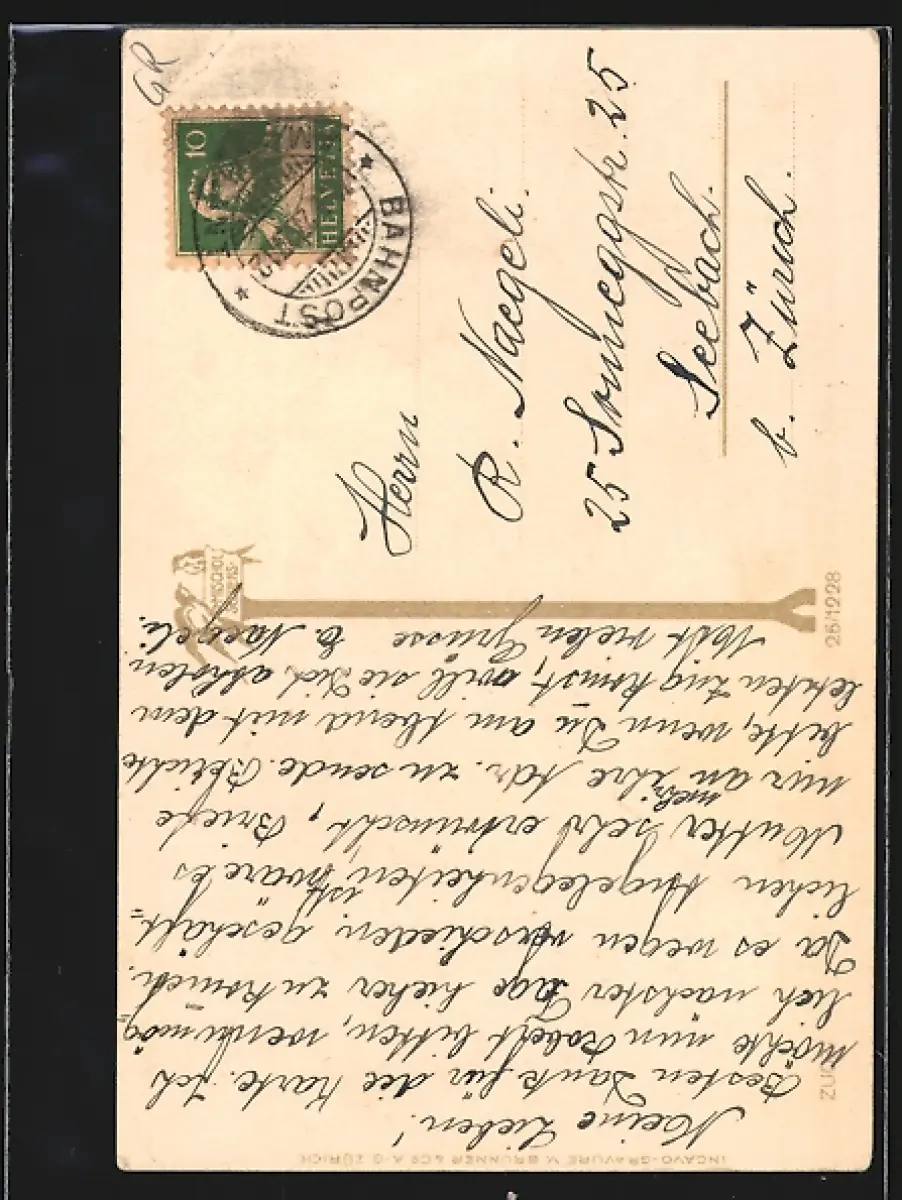 GR
10
HELVETIA
BAHNPOST
Herrn
R. Naegeli.
25 Sonneggstr. 25
Seebach.
b. Zürich.
25/1228
Meine Lieben!
Besten Dank für die Karte. Ich
möchte nun Robert bitten, wenn mög=
lich nächster Tage hieher zu komen.
Da es wegen verschieden. geschäft=
lichen Angelegenheiten ist, wäre es
Mutter sehr erwünscht, Briefe
mehr
nur an ihre Adr. zu sende. Berichte
bitte, wenn Du am Abend mit dem
letzten Zug komst, will sie Dich abholen.
Mit vielen Grüsse E. Naegeli.
INCAVO-GRAVURE V. BRUNNER & Co A-G. ZÜRICH